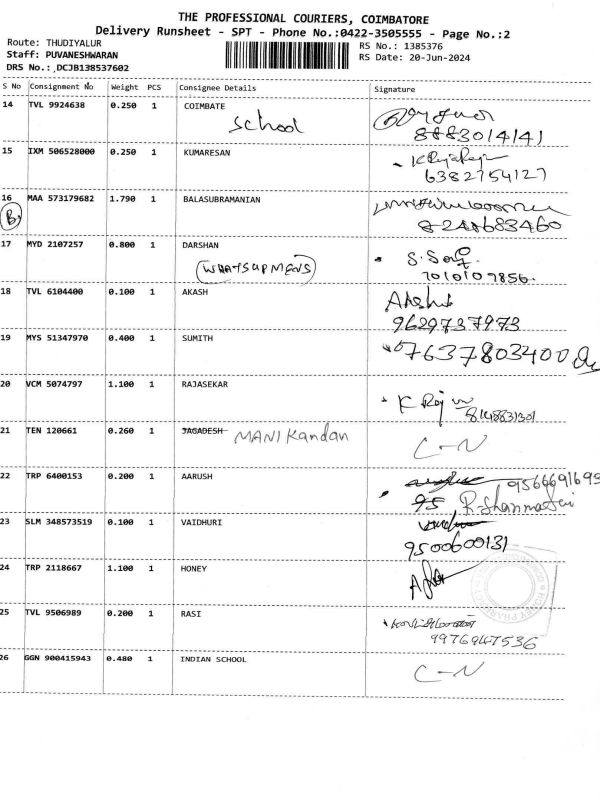 THE PROFESSIONAL COURIERS, COIMBATORE
Delivery Runsheet - SPT - Phone No.:0422-3505555 - Page No.:2
Route: THUDIYALUR
RS No.: 1385376
Staff: PUVANESHWARAN
RS Date: 20-Jun-2024
DRS No.: ,DCJB138537602
S No Consignment No Weight PCS Consignee Details Signature
14 TVL 9924638 0.250 1 COIMBATE
School
8883014141
15 IXM 506528000 0.250 1 KUMARESAN
6382754127
16 MAA 573179682 1.790 1 BALASUBRAMANIAN
B
8248683460
17 MYD 2107257 0.800 1 DARSHAN
(WHATSUPMENS)
7010109856.
18 TVL 6104400 0.100 1 AKASH
9629737973
19 MYS 51347970 0.400 1 SUMITH
7637803400
20 VCM 5074797 1.100 1 RAJASEKAR
K Raj
21 TEN 120661 0.260 1 JAGADESH MANIKandan
C-N
22 TRP 6400153 0.200 1 AARUSH
9566691693
95
23 SLM 348573519 0.100 1 VAIDHURI
9500600131
24 TRP 2118667 1.100 1 HONEY
25 TVL 9506989 0.200 1 RASI
9976947536
26 GGN 900415943 0.480 1 INDIAN SCHOOL
C-N